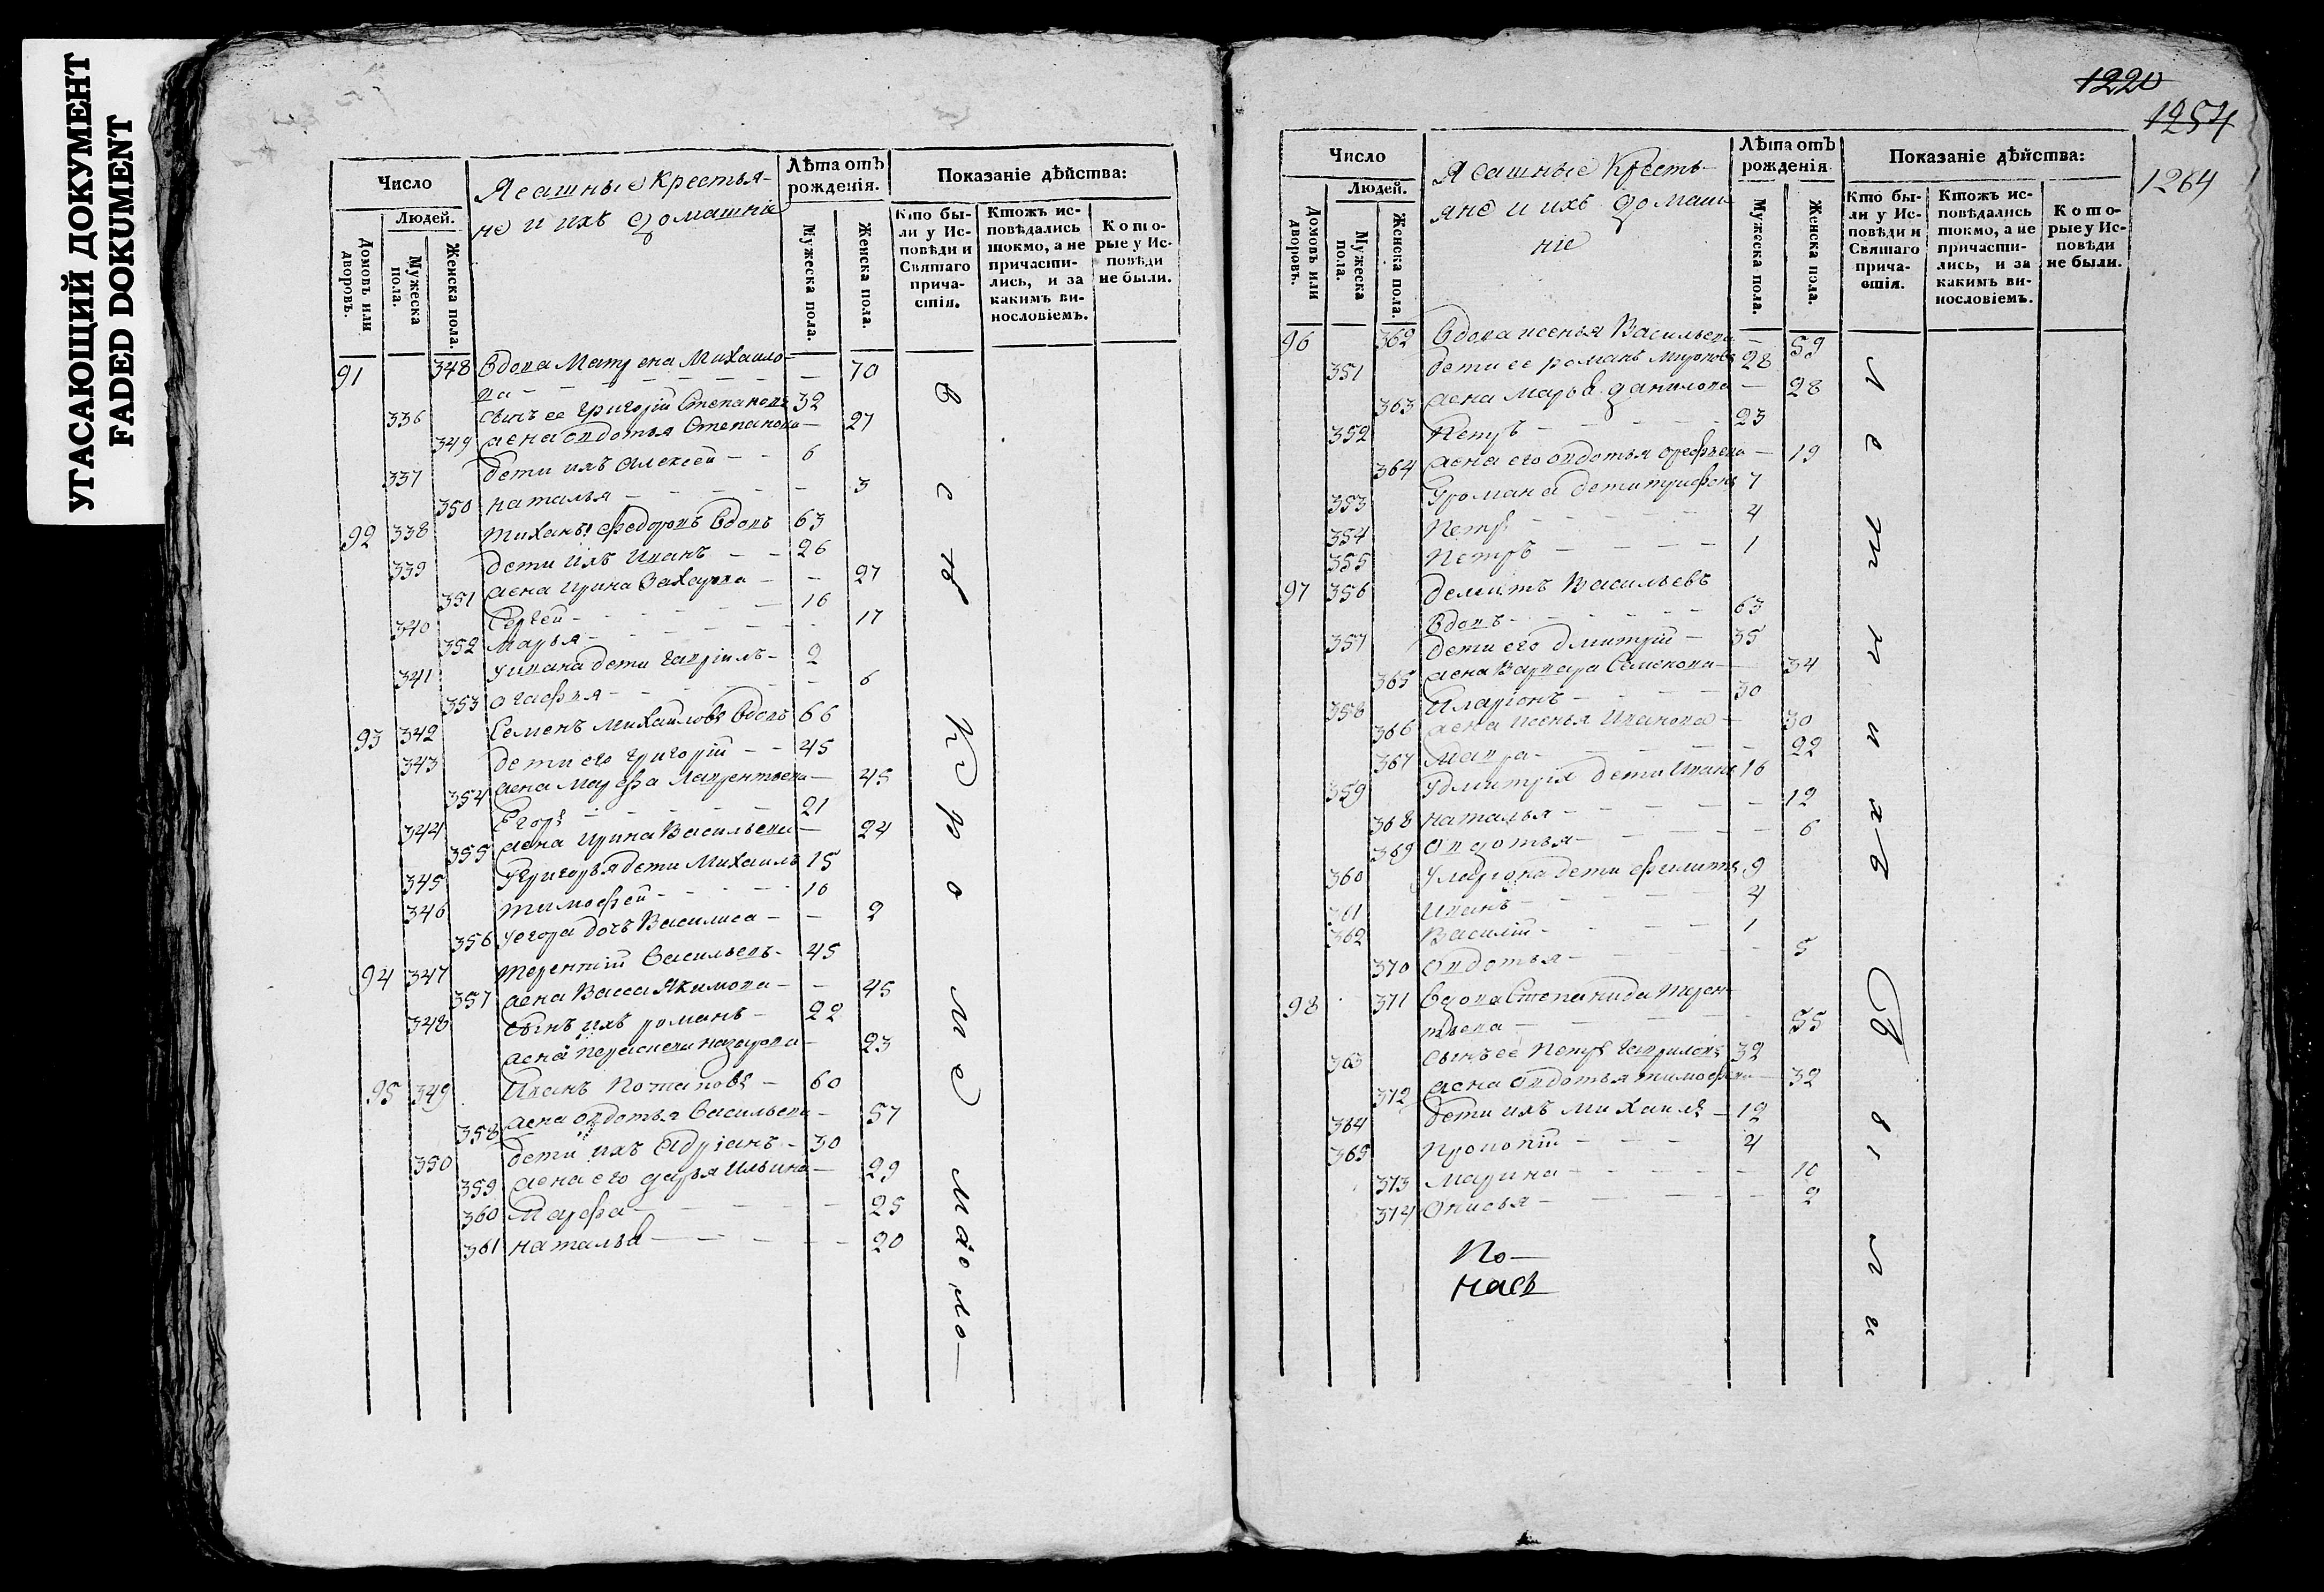 УГАСАЮЩИЙ ДОКУМЕНТ
FADED DOKUMENT
Число
Ясашные Крестья-
не и ихъ домашніе
Лѣта отъ рожденія.
Показаніе дѣйства:
Людей.
Домовъ или дворовъ.
Мужеска пола.
Женска пола.
Мужеска пола.
Женска пола.
Кто бы-
ли у Ис-
повѣди и
Святаго
прича-
стія.
Ктожъ ис-
повѣдались
токмо, а не
причасти-
лись, и за
какимъ ви-
нословіемъ.
Кото-
рые у Ис-
повѣди
не были.
91 348 Вдова Матрена Михаило-
ва — 70
336 Сынъ ее Григорій Степановъ 32
349 Жена Овдотья Степанова — 27
337 Дети ихъ Алексей — 6
350 Наталья — 3
92 338 Федоровъ Вдовъ 63
339 Дети ихъ Иванъ — 26
351 Жена Ирина Захарова — 27
340 Сергей — 16
352 Марья — 17
341 У Ивана дети Гавріилъ — 2
353 Огафья — 6
93 342 Семенъ Михайловъ Вдовъ 66
343 Дети его Григорій — 45
354 Жена Марфа Лаврентьева — 45
344 Егоръ — 21
355 Жена Ирина Васильева — 24
345 У Григорья дети Михаилъ 15
346 Тимофей — 10
356 У Егора дочь Василиса — 2
94 347 Терентій Васильевъ — 45
357 Жена Васса Якимова — 45
348 Сынъ ихъ Романъ — 22
Жена Парасковья Назарова — 23
95 349 Иванъ Потаповъ — 60
358 Жена Овдотья Васильева — 57
350 Дети ихъ Адріанъ — 30
359 Жена его Дарья Ильина — 29
360 Марфа — 25
361 Наталья — 20
в
с
ѣ
К
р
о
м
е
м
а
ло
—
1220
1254
1264
Число
Ясашные Кресть-
яне и ихъ домаш-
ніе
Лѣта отъ рожденія
Показаніе дѣйства:
Людей.
Домовъ или дворовъ.
Мужеска пола.
Женска пола.
Мужеска пола.
Женска пола.
Кто бы-
ли у Ис-
повѣди и
Святаго
прича-
стія.
Ктожъ ис-
повѣдались
токмо, а не
причасти-
лись, и за
какимъ ви-
нословіемъ.
Кото-
рые у Ис-
повѣди
не были.
96 362 Вдова Ксенья Васильева — 59
351 Дети ее Романъ Мироновъ 28
363 Жена Марья Данилова — 28
352 Петръ — 23
364 Жена его Овдотья Орефьева — 19
353 У Романа дети Трифонъ 7
354 Петръ — 4
355 Петръ — 1
97 356 Демитъ Васильевъ
Вдовъ — 63
357 Дети его Дмитрій — 35
365 Жена Варвара Семенова — 34
358 Иларіонъ — 30
366 Жена Ксенья Иванова — 30
367 Мавра — 22
359 У Дмитрія дети Иванъ 16
368 Наталья — 12
369 Овдотья — 6
360 У Ларіона дети Филиппъ 9
361 Иванъ — 4
362 Василій — 1
370 Овдотья — 5
98 371 Вдова Степанида Терен-
тьева — 55
363 Сынъ ее Петръ Гавриловъ 32
372 Жена Овдотья Тимофеева — 32
364 Дети ихъ Михаилъ — 12
365 Прокопій — 4
373 Марина — 10
374 Онисья — 2
По—
насъ
л
е
т
н
и
хъ
б
ы
л
и